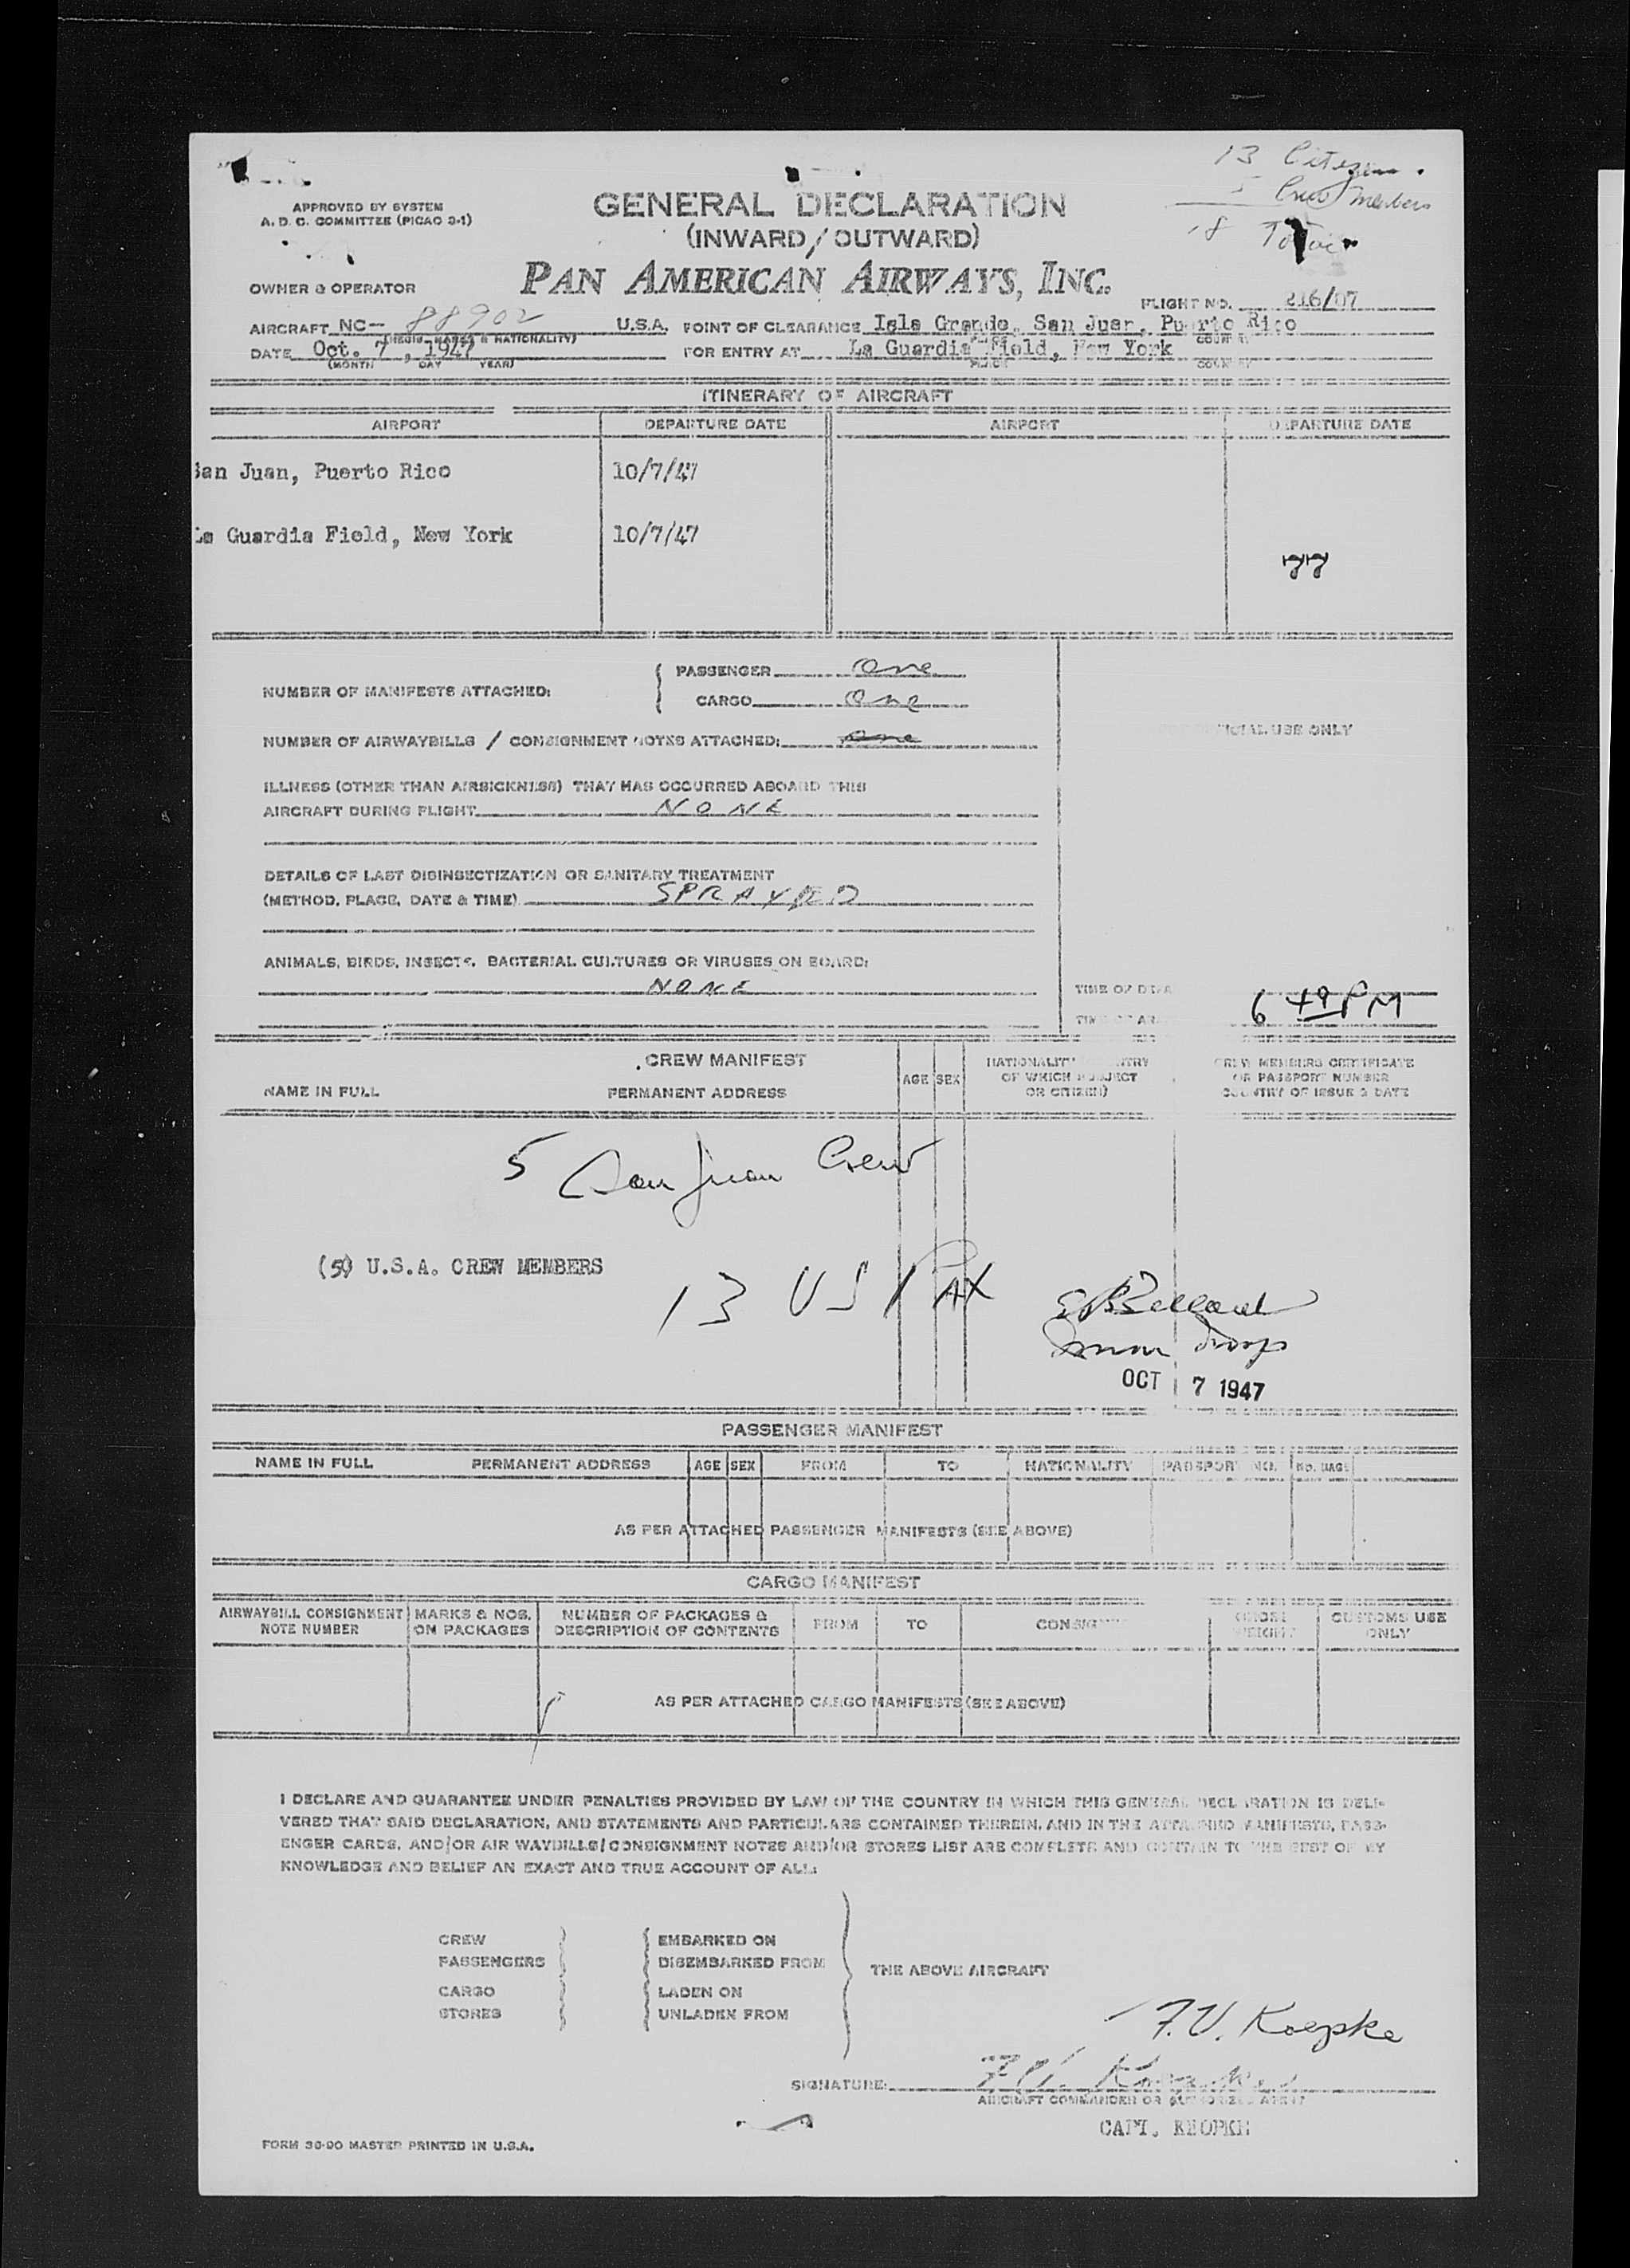 13 Citizen
5 Crew Members
18 Total
APPROVED BY SYSTEM
A. D. C. COMMITTEE (PICAO 3-1)
GENERAL DECLARATION
(INWARD/OUTWARD)
PAN AMERICAN AIRWAYS, INC.
OWNER & OPERATOR
FLIGHT NO. 216/07
AIRCRAFT NC- 88902 U.S.A. POINT OF CLEARANCE Isla Grande, San Juan, Puerto Rico
(REGIS. MARKS & NATIONALITY) COUNTRY
DATE Oct. 7, 1947 FOR ENTRY AT La Guardia Field, New York
(MONTH DAY YEAR) PLACE COUNTRY
ITINERARY OF AIRCRAFT
AIRPORT DEPARTURE DATE AIRPORT DEPARTURE DATE
San Juan, Puerto Rico 10/7/47
La Guardia Field, New York 10/7/47
77
NUMBER OF MANIFESTS ATTACHED: PASSENGER One
CARGO One
NUMBER OF AIRWAYBILLS / CONSIGNMENT NOTES ATTACHED: One
OFFICIAL USE ONLY
ILLNESS (OTHER THAN AIRSICKNESS) THAT HAS OCCURRED ABOARD THIS
AIRCRAFT DURING FLIGHT NONE
DETAILS OF LAST DISINSECTIZATION OR SANITARY TREATMENT
(METHOD, PLACE, DATE & TIME) SPRAYED
ANIMALS, BIRDS, INSECTS, BACTERIAL CULTURES OR VIRUSES ON BOARD:
NONE
TIME OF
6 49 PM
CREW MANIFEST
NAME IN FULL PERMANENT ADDRESS AGE SEX NATIONALITY (COUNTRY OF WHICH SUBJECT OR CITIZEN) CREW MEMBERS CERTIFICATE OR PASSPORT NUMBER COUNTRY OF ISSUE & DATE
5 San Juan Crew
(5) U.S.A. CREW MEMBERS
13 US PAX
OCT 7 1947
PASSENGER MANIFEST
NAME IN FULL PERMANENT ADDRESS AGE SEX FROM TO NATIONALITY PASSPORT NO. NO. BAGS
AS PER ATTACHED PASSENGER MANIFESTS (SEE ABOVE)
CARGO MANIFEST
AIRWAYBILL CONSIGNMENT NOTE NUMBER MARKS & NOS. ON PACKAGES NUMBER OF PACKAGES & DESCRIPTION OF CONTENTS FROM TO CONSIG GROSS WEIGHT CUSTOMS USE ONLY
AS PER ATTACHED CARGO MANIFESTS (SEE ABOVE)
I DECLARE AND GUARANTEE UNDER PENALTIES PROVIDED BY LAW OF THE COUNTRY IN WHICH THIS GENERAL DECLARATION IS DELI-
VERED THAT SAID DECLARATION, AND STATEMENTS AND PARTICULARS CONTAINED THEREIN, AND IN THE ATTACHED MANIFESTS, PASS-
ENGER CARDS, AND/OR AIR WAYBILLS/CONSIGNMENT NOTES AND/OR STORES LIST ARE COMPLETE AND CONTAIN TO THE BEST OF MY
KNOWLEDGE AND BELIEF AN EXACT AND TRUE ACCOUNT OF ALL:
CREW EMBARKED ON
PASSENGERS DISEMBARKED FROM
THE ABOVE AIRCRAFT
CARGO LADEN ON
STORES UNLADEN FROM
F.V. Koepke
SIGNATURE: F.V. Koepke
AIRCRAFT COMMANDER OR AUTHORIZED AGENT
CAPT. KEOPKE
FORM 36-90 MASTER PRINTED IN U.S.A.